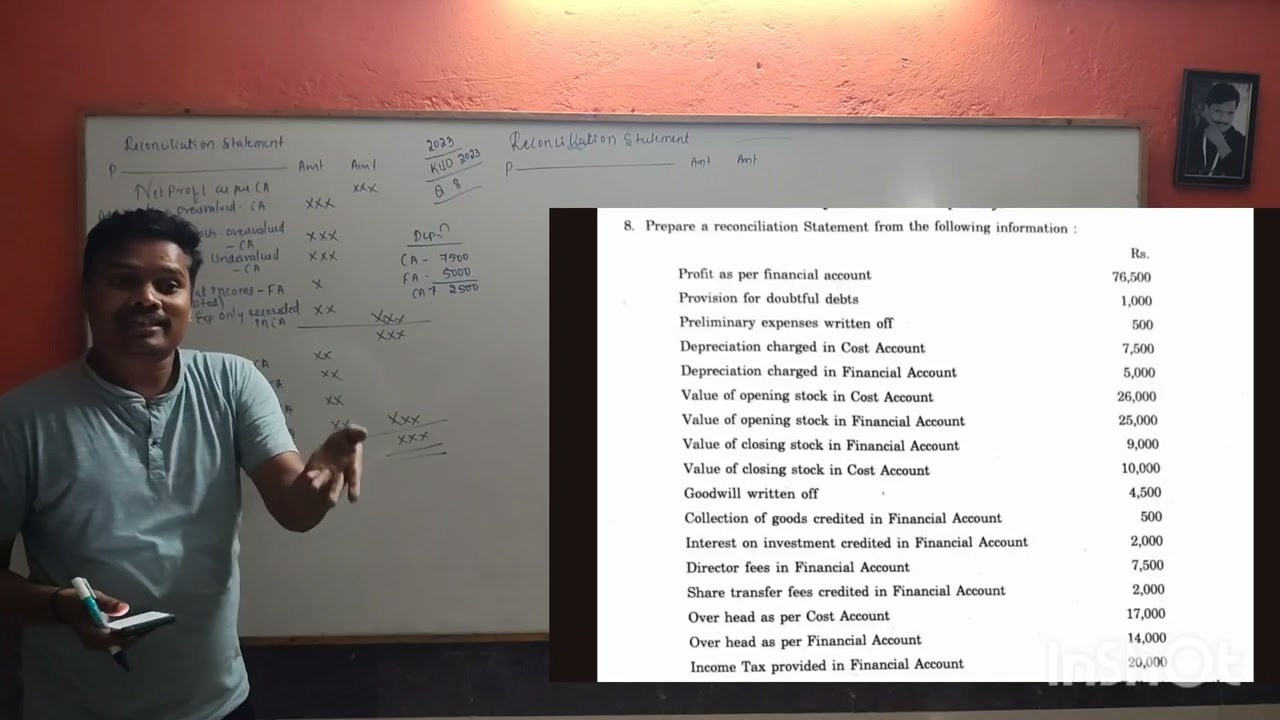 Reconciliation Statement
P Amt Amt
Net Profit as per CA xxx
overvalued - CA xxx
overvalued - CA xxx
Undervalued - CA xxx
Income - FA x
Exp only recorded in CA xx
xxx
xxx
CA xx
xx
xx
xx xxx
xxx
2023
KUD 2023
Q 8
Depn
CA - 7500
FA - 5000
CA↑ 2500
Reconciliation Statement
P Amt Amt
8. Prepare a reconciliation Statement from the following information :
Rs.
Profit as per financial account 76,500
Provision for doubtful debts 1,000
Preliminary expenses written off 500
Depreciation charged in Cost Account 7,500
Depreciation charged in Financial Account 5,000
Value of opening stock in Cost Account 26,000
Value of opening stock in Financial Account 25,000
Value of closing stock in Financial Account 9,000
Value of closing stock in Cost Account 10,000
Goodwill written off 4,500
Collection of goods credited in Financial Account 500
Interest on investment credited in Financial Account 2,000
Director fees in Financial Account 7,500
Share transfer fees credited in Financial Account 2,000
Over head as per Cost Account 17,000
Over head as per Financial Account 14,000
Income Tax provided in Financial Account 20,000
InShOt